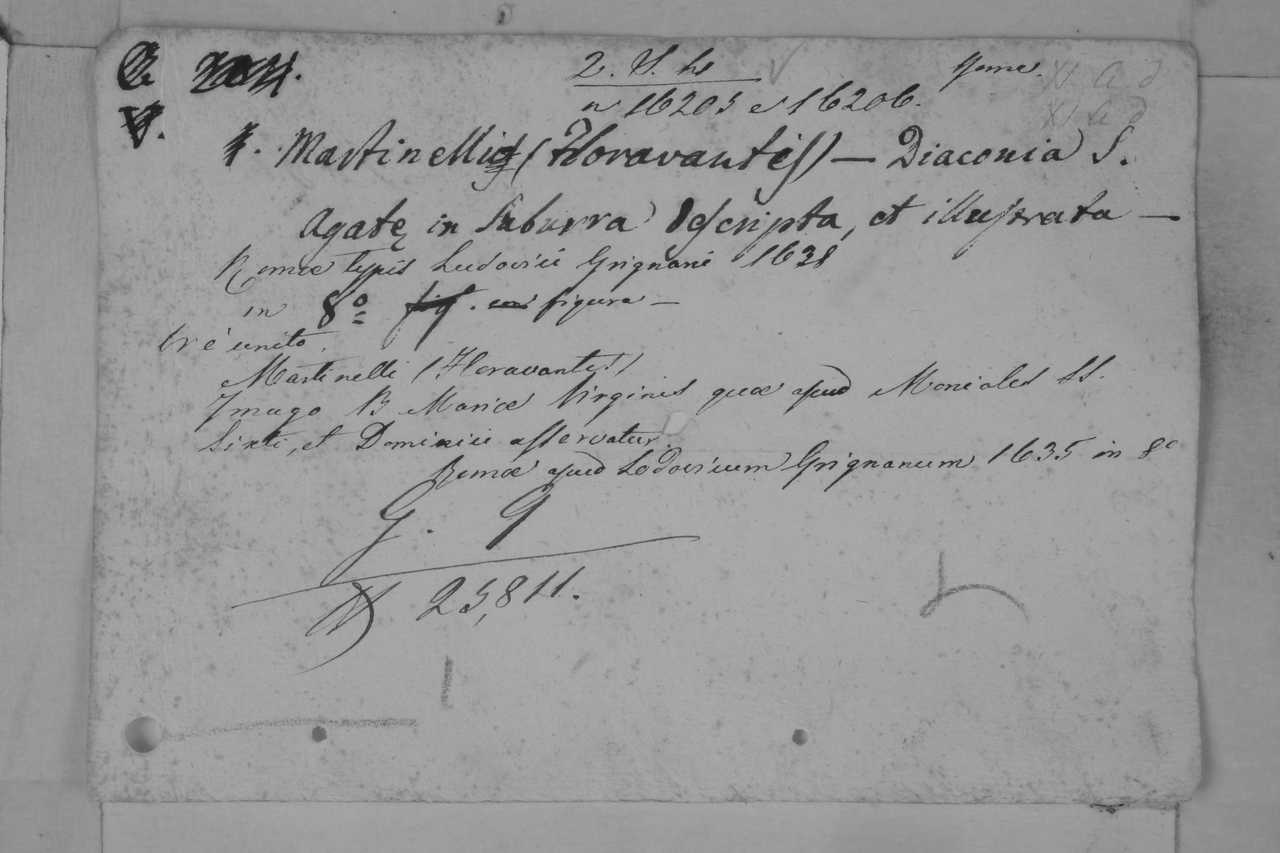 2. S. hs
n 16205 e 16206.
Martinelli (Floravantis) — Diaconia S.
Agatę in Suburra descripta, et illustrata —
Romæ typis Ludovici Grignani 1638
in 8º figura —
Vi è unito.
Martinelli (Floravantis)
Imago B Mariæ Virginis quæ apud Moniales SS.
Sixti, et Dominici asservatur.
Romæ apud Lodovicum Grignanum 1635 in 8º
G. 9
23,811.